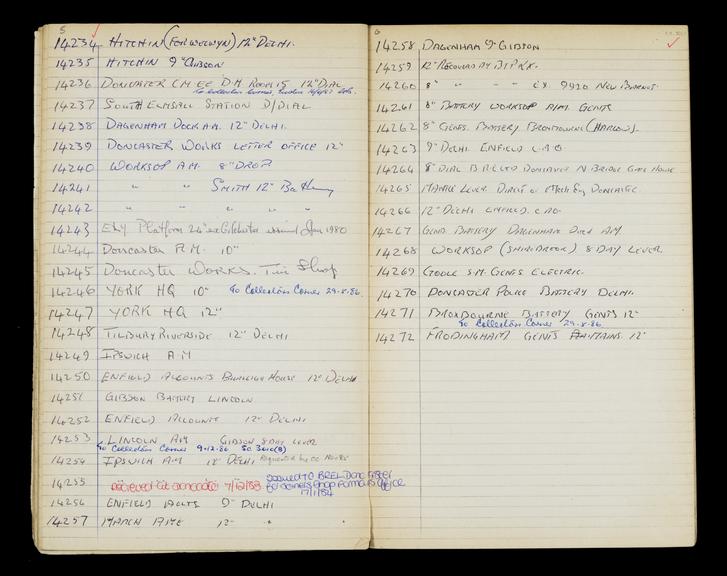 5
14234 HITCHIN (FOR WELWYN) 12" DELHI.
14235 HITCHIN 9" GIBSON
14236 DONCASTER C.M.EE D.M. 12" DIAL
To Collectors Corner,
14237 SOUTH ELMSALL STATION D/DIAL
14238 DAGENHAM DOCK A.M. 12" DELHI.
14239 DONCASTER WORKS LETTER OFFICE 12"
14240 WORKSOP A.M. 8" DROP
14241 " " SMITH 12"
14242 " " " "
14243 ELY Platform 24" ex Colchester issued Jan 1980
14244 Doncaster A.M. 10"
14245 Doncaster WORKS. Tin Shop
14246 YORK HQ 10" To Collectors Corner 29-8-86
14247 YORK HQ 12"
14248 TILBURY RIVERSIDE 12" DELHI
14249 IPSWICH A.M
14250 ENFIELD ACCOUNTS BURLEIGH HOUSE 12" DELHI
14251 GIBSON BATTERY LINCOLN
14252 ENFIELD ACCOUNTS 12" DELHI
14253 LINCOLN AM GIBSON 8 DAY LEVER
To Collectors Corner 9-12-86
14254 IPSWICH A.M 18" DELHI Requested by CC
14255 7/12/83 issued to BREL Doncaster
Office
17/1/84
14256 ENFIELD ACCTS 9" DELHI
14257 MARCH AME 12" " "
6
14258 DAGENHAM 9" GIBSON
14259 12" RECOVERED BY
14260 8" " - " EX 9920 NEW BARNET.
14261 8" BATTERY WORKSOP A/M. GENTS
14262 8" GENTS. BATTERY BROXBOURNE (HARLOW).
14263 9" DELHI ENFIELD
14264 8" DIAL DONCASTER N BRIDGE GATE HOUSE
14265 MANTLE LEVER. DIRECT of Mech Eng DONCASTER
14266 12" DELHI ENFIELD.
14267 GENTS BATTERY DAGENHAM DOCK AM
14268 WORKSOP (SHIREBROOK) 8 DAY LEVER
14269 GOOLE S.M. GENTS ELECTRIC.
14270 DONCASTER POLICE BATTERY DELHI.
14271 BROXBOURNE BATTERY GENTS 12"
To Collectors Corner 29-8-86
14272 FRODINGHAM GENTS 12"